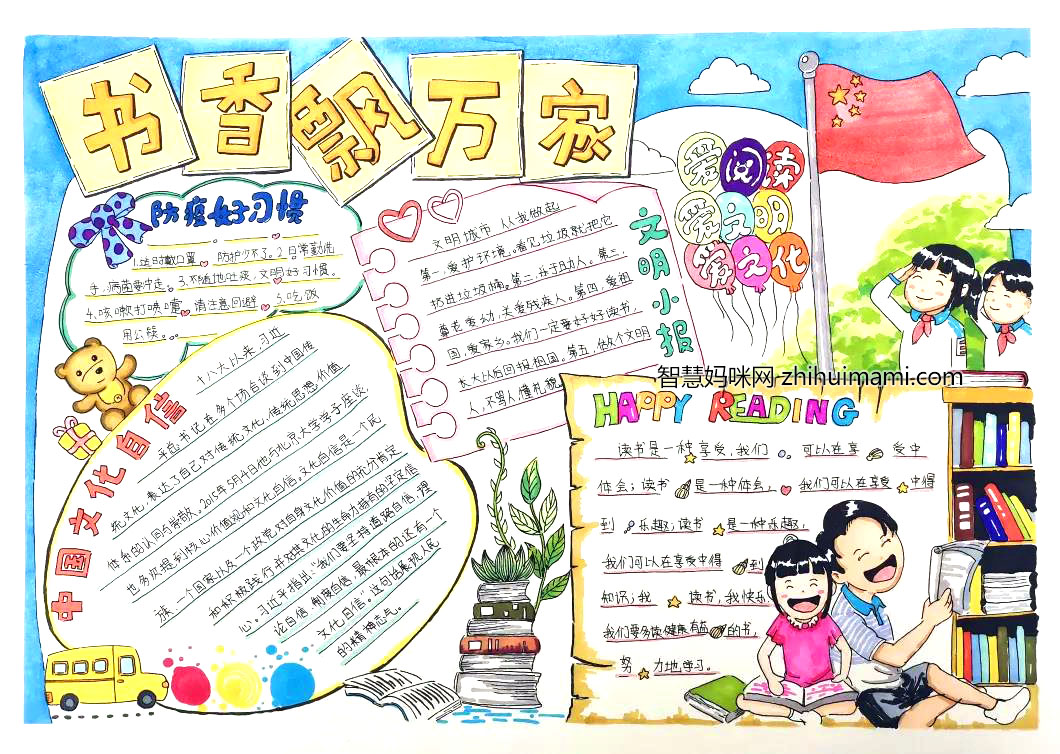 书香飘万家
防疫好习惯
1.这时戴口罩 防护少不了。2.日常勤洗
手,病菌要冲走。3.不随地吐痰,文明好习惯。
4.咳嗽打喷嚏,请注意回避 5.吃饭
用公筷。。。
文明小报
文明城市 从我做起
第一,爱护环境。看见垃圾就把它
扔进垃圾桶。第二,乐于助人。第三,
尊老爱幼,关爱残疾人。第四,爱祖
国,爱家乡。我们一定要好好读书,
长大以后回报祖国。第五,做个文明
人,不骂人,懂礼貌
爱阅读
爱文明
爱文化
智慧妈咪网-zhihuimami.com
中国文化自信
十八大以来,习近
平总书记在多个场合谈到中国传
统文化,表达了自己对传统文化,传统思想价值
体系的认同与崇敬。2015年5月4日他与北京大学学子座谈,
也多次提到核心价值观和文化自信。文化自信是一个民
族一个国家以及一个政党,对自身文化价值的充分肯定
和积极践行并对其文化的生命力持有的坚定信
心。习近平指出:“我们要坚持道路自信,理
论自信,制度自信,最根本的还有一个
文化自信”。这句话展现人民
的精神志气。
HAPPY READING
读书是一种享受,我们 可以在享 受中
体会;读书 是一种体会, 我们可以在享受 中得
到 乐趣;读书 是一种乐趣,
我们可以在享受中得 到
知识;我 读书,我快乐
我们要多读健康有益 的书,
努 力地学习。